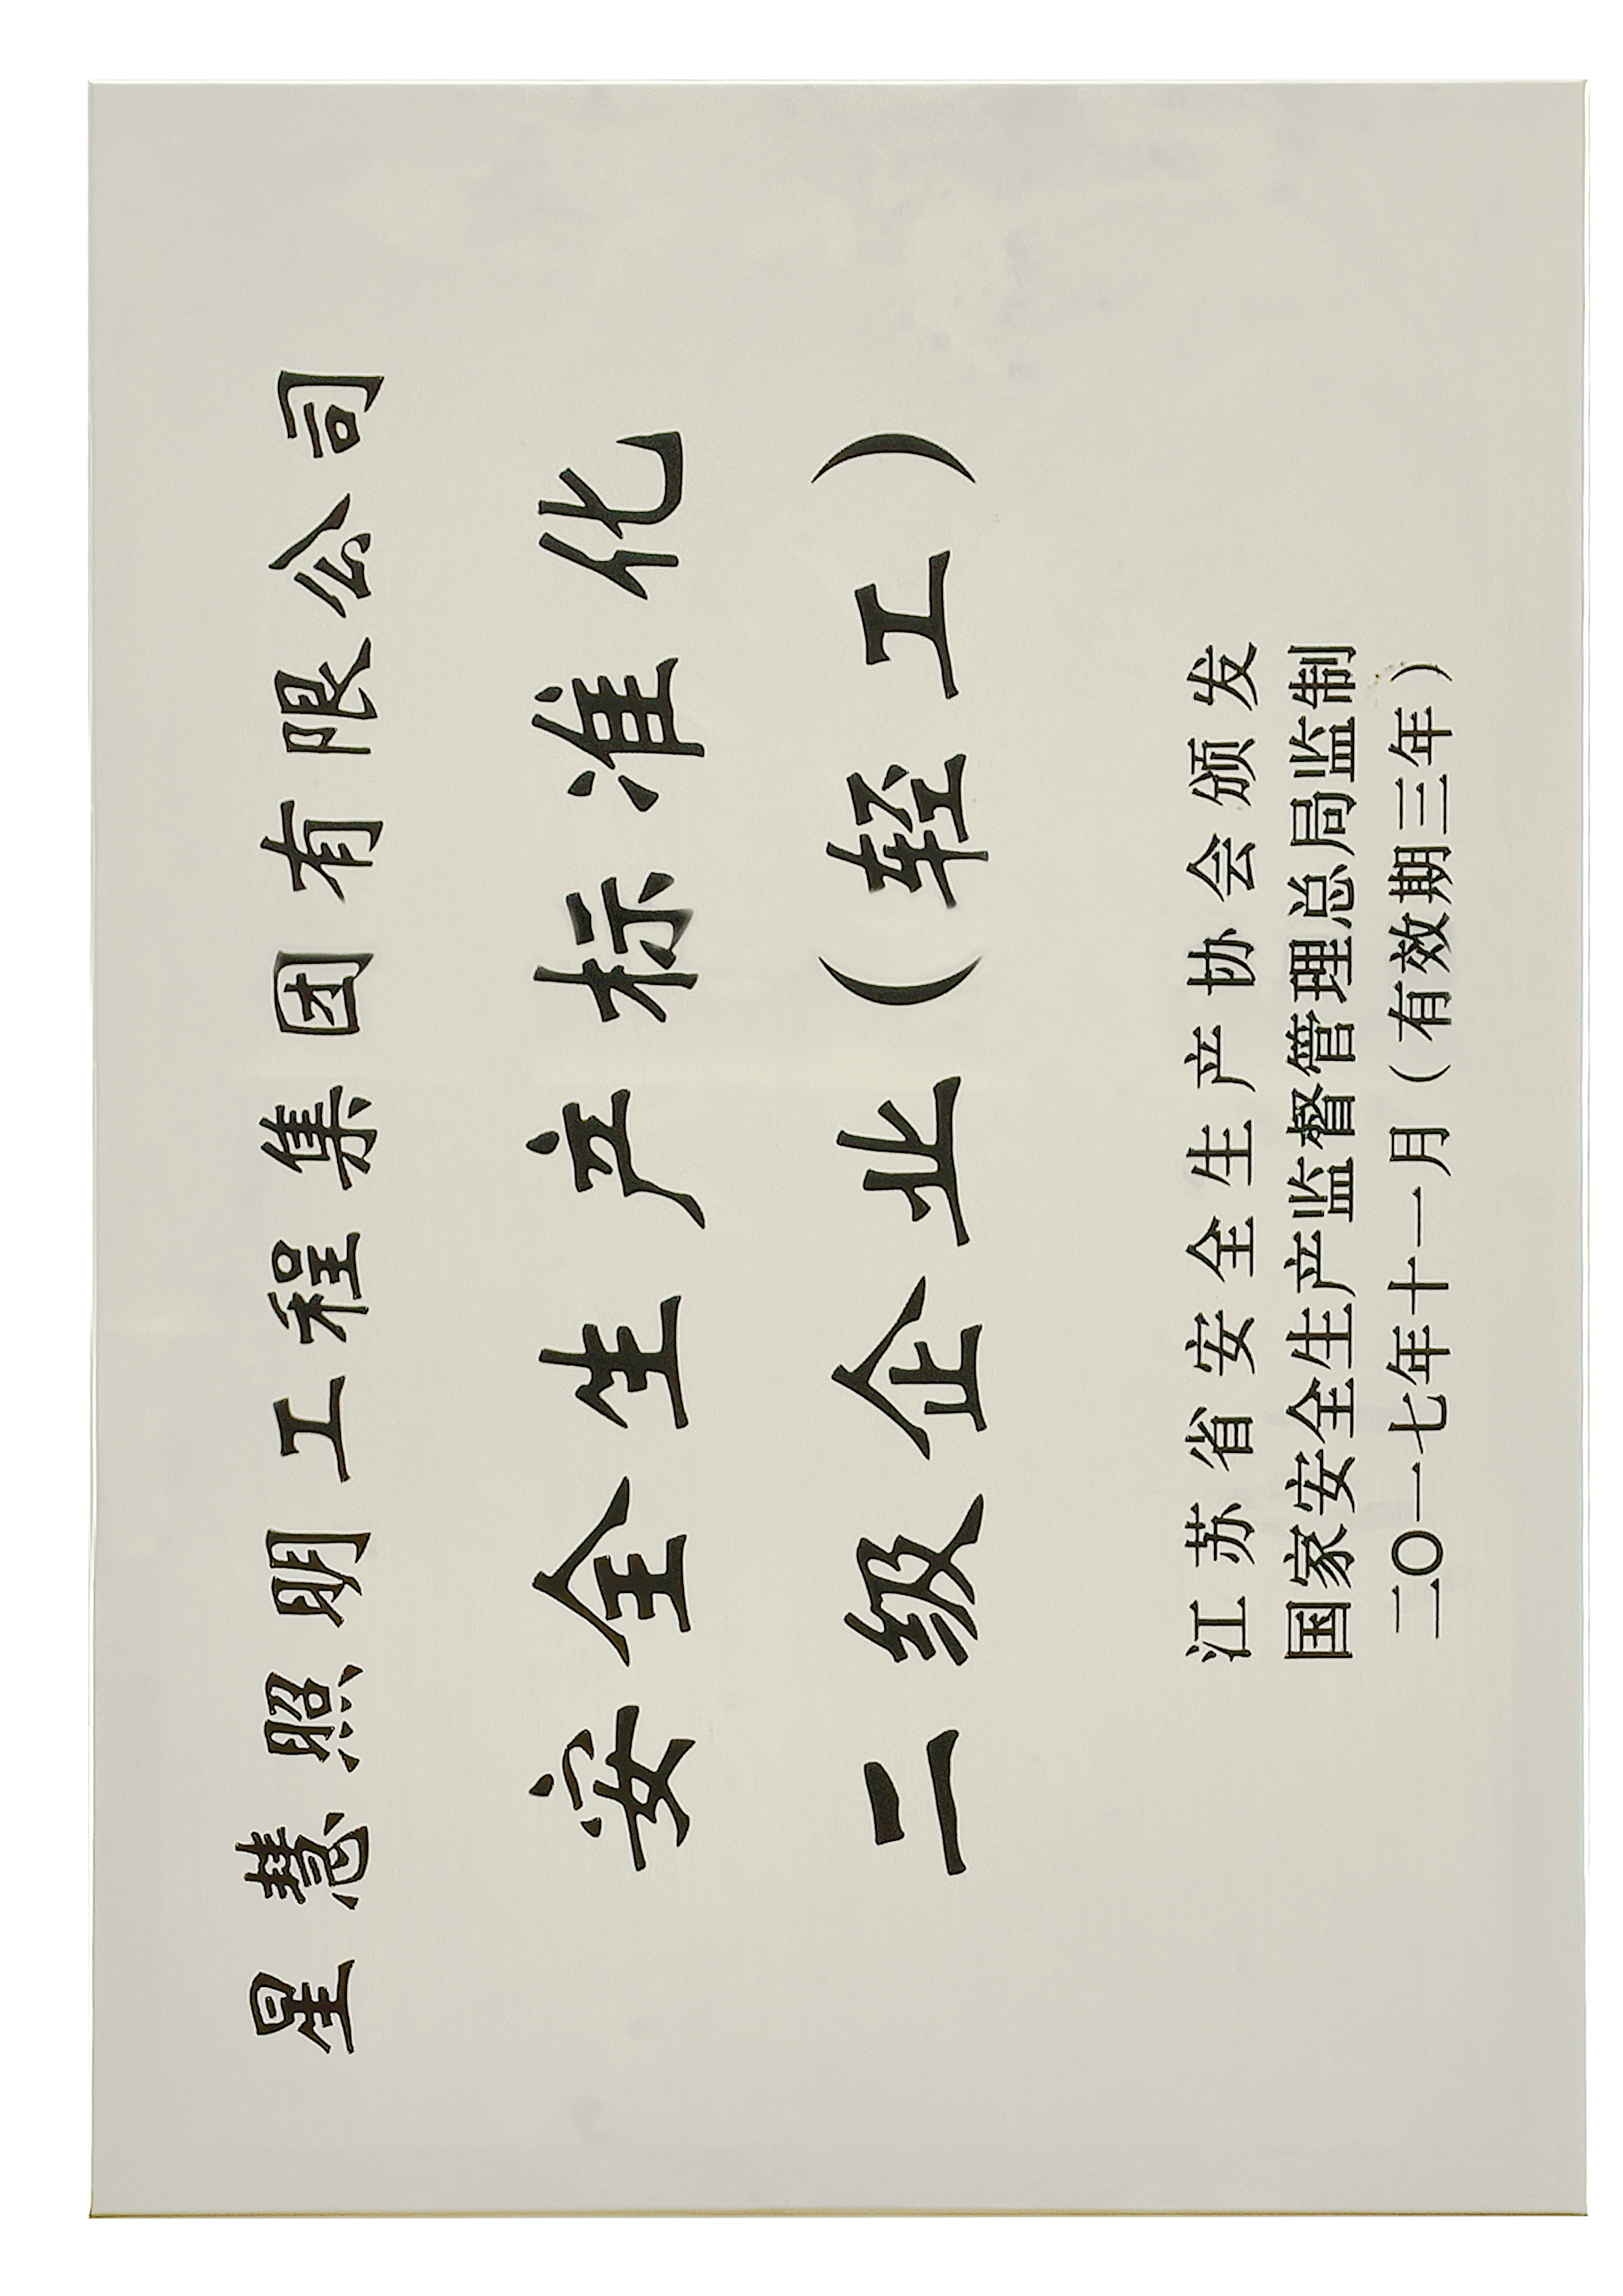 星慧照明工程集团有限公司
安全生产标准化
二级企业（轻工）
江苏省安全生产协会颁发
国家安全生产监督管理总局监制
二〇一七年十一月（有效期三年）